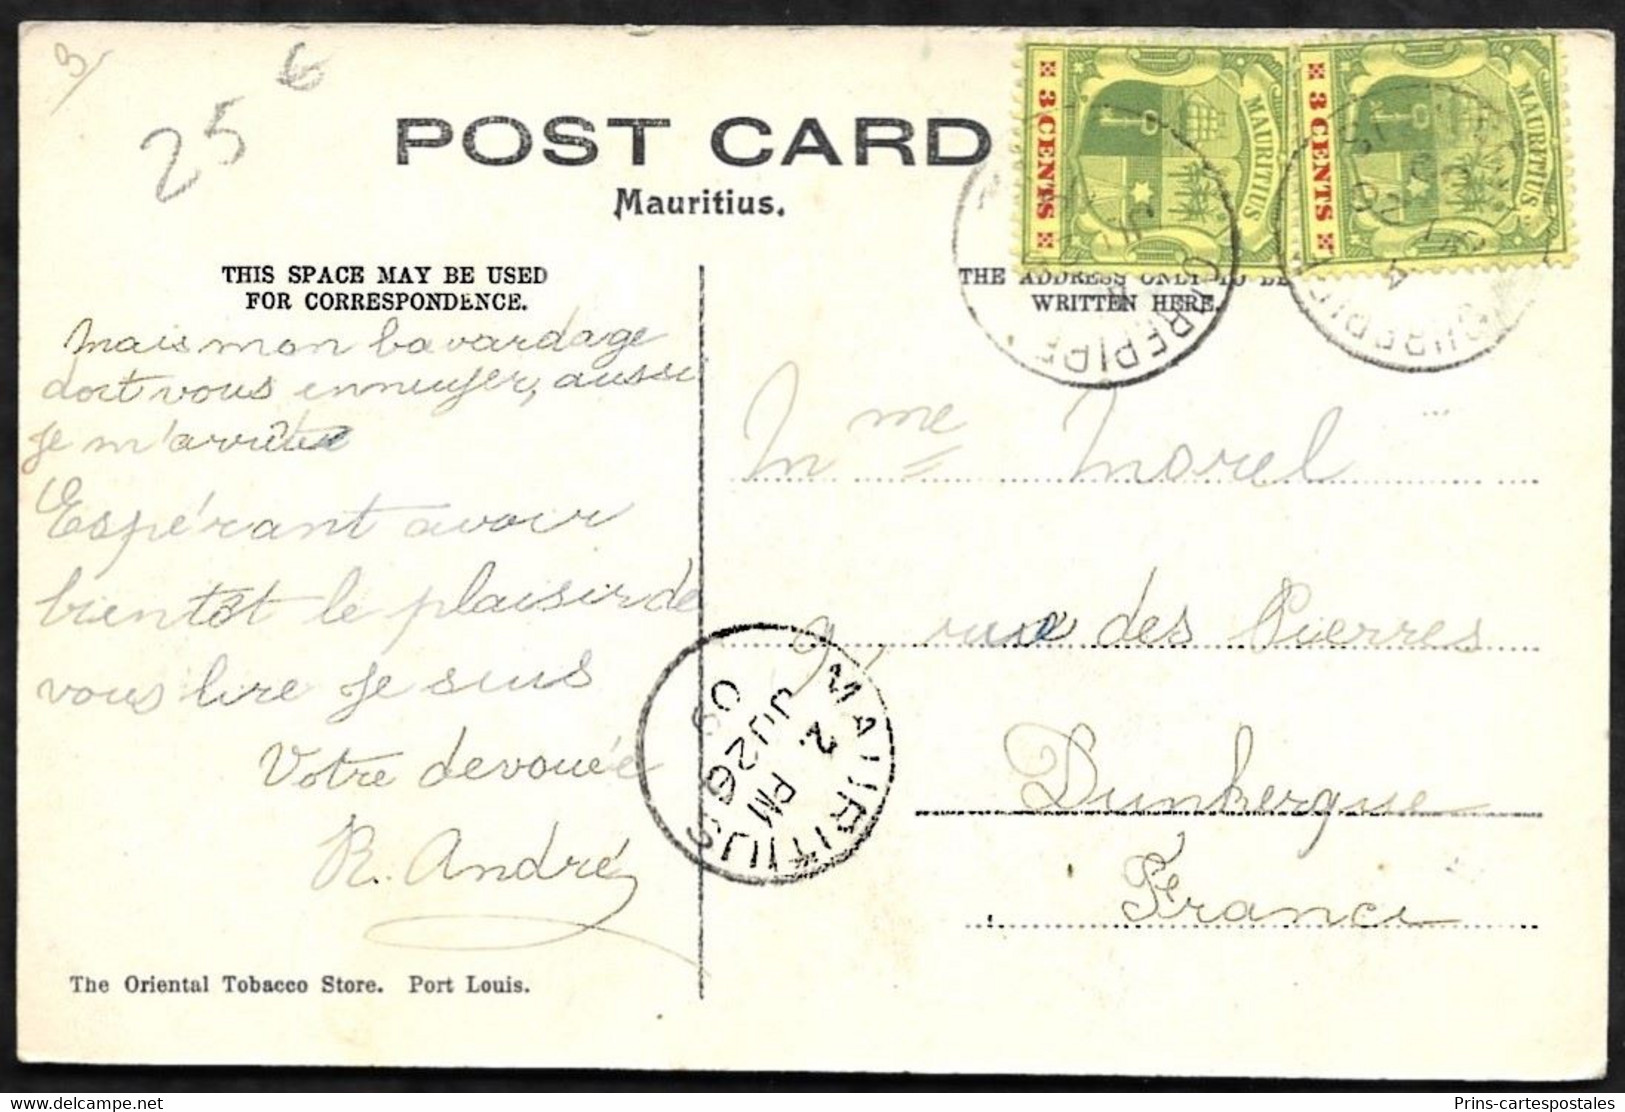 3/
25
6
POST CARD
Mauritius.
THIS SPACE MAY BE USED
FOR CORRESPONDENCE.
THE ADDRESS ONLY TO BE
WRITTEN HERE.
MAURITIUS
3 CENTS
MAURITIUS
3 CENTS
CUREPIPE
CUREPIPE
Mais mon bavardage
doit vous ennuyer, aussi
je m'arrête
Espérant avoir
bientôt le plaisir de
vous lire je suis
Votre devouée
R. André
Mme Morel
9, rue des Pierres
Dunkerque
France
MAURITIUS
2 PM
JU 26
09
The Oriental Tobacco Store. Port Louis.
Prins-cartespostales
www.delcampe.net